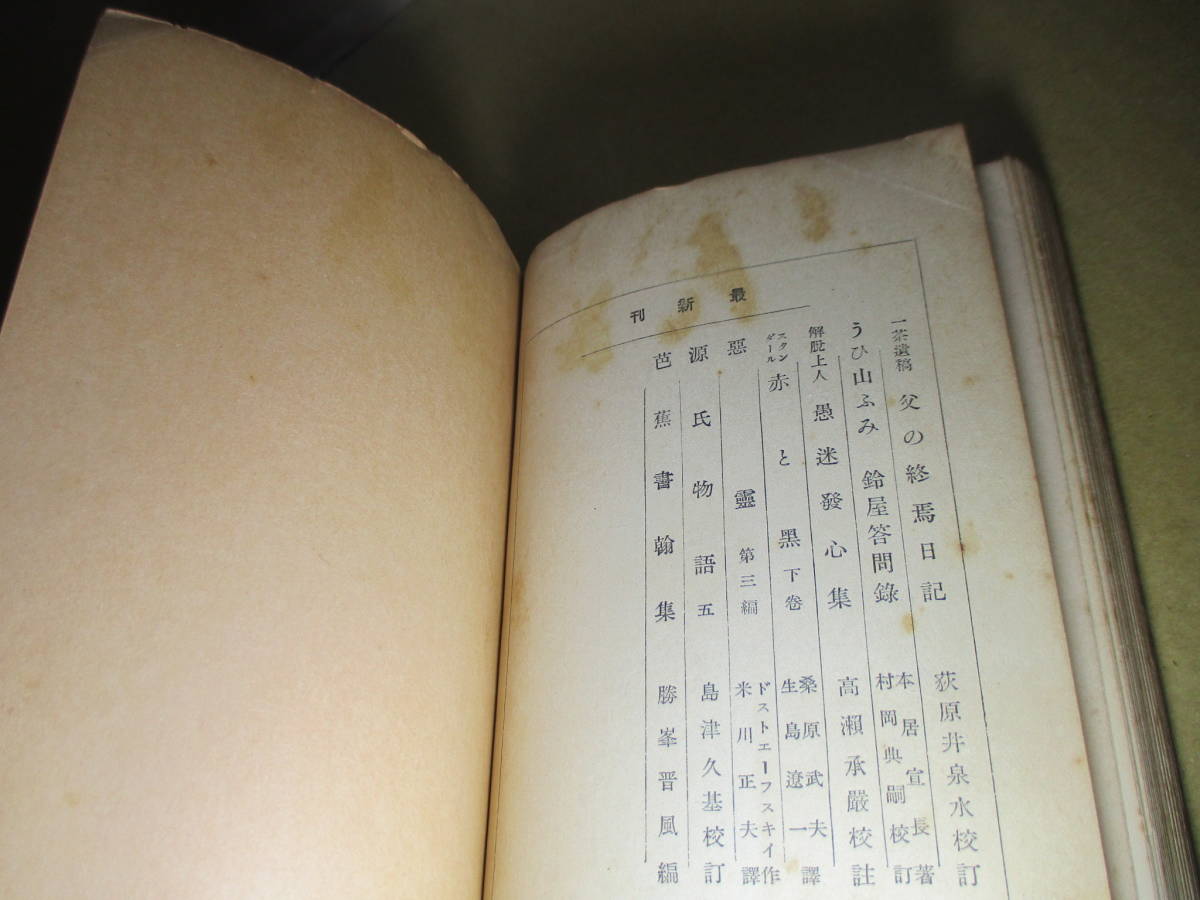 最新刊
一茶遺稿 父の終焉日記 荻原井泉水校訂
うひ山ふみ 鈴屋答問錄 本居宣長著 村岡典嗣校訂
解脫上人 愚迷發心集 高瀨承嚴校註
スタンダール 赤と黑 下卷 桑原武夫 生島遼一 譯
惡靈 第三編 ドストエーフスキイ作 米川正夫譯
源氏物語 五 島津久基校訂
芭蕉書翰集 勝峯晋風編